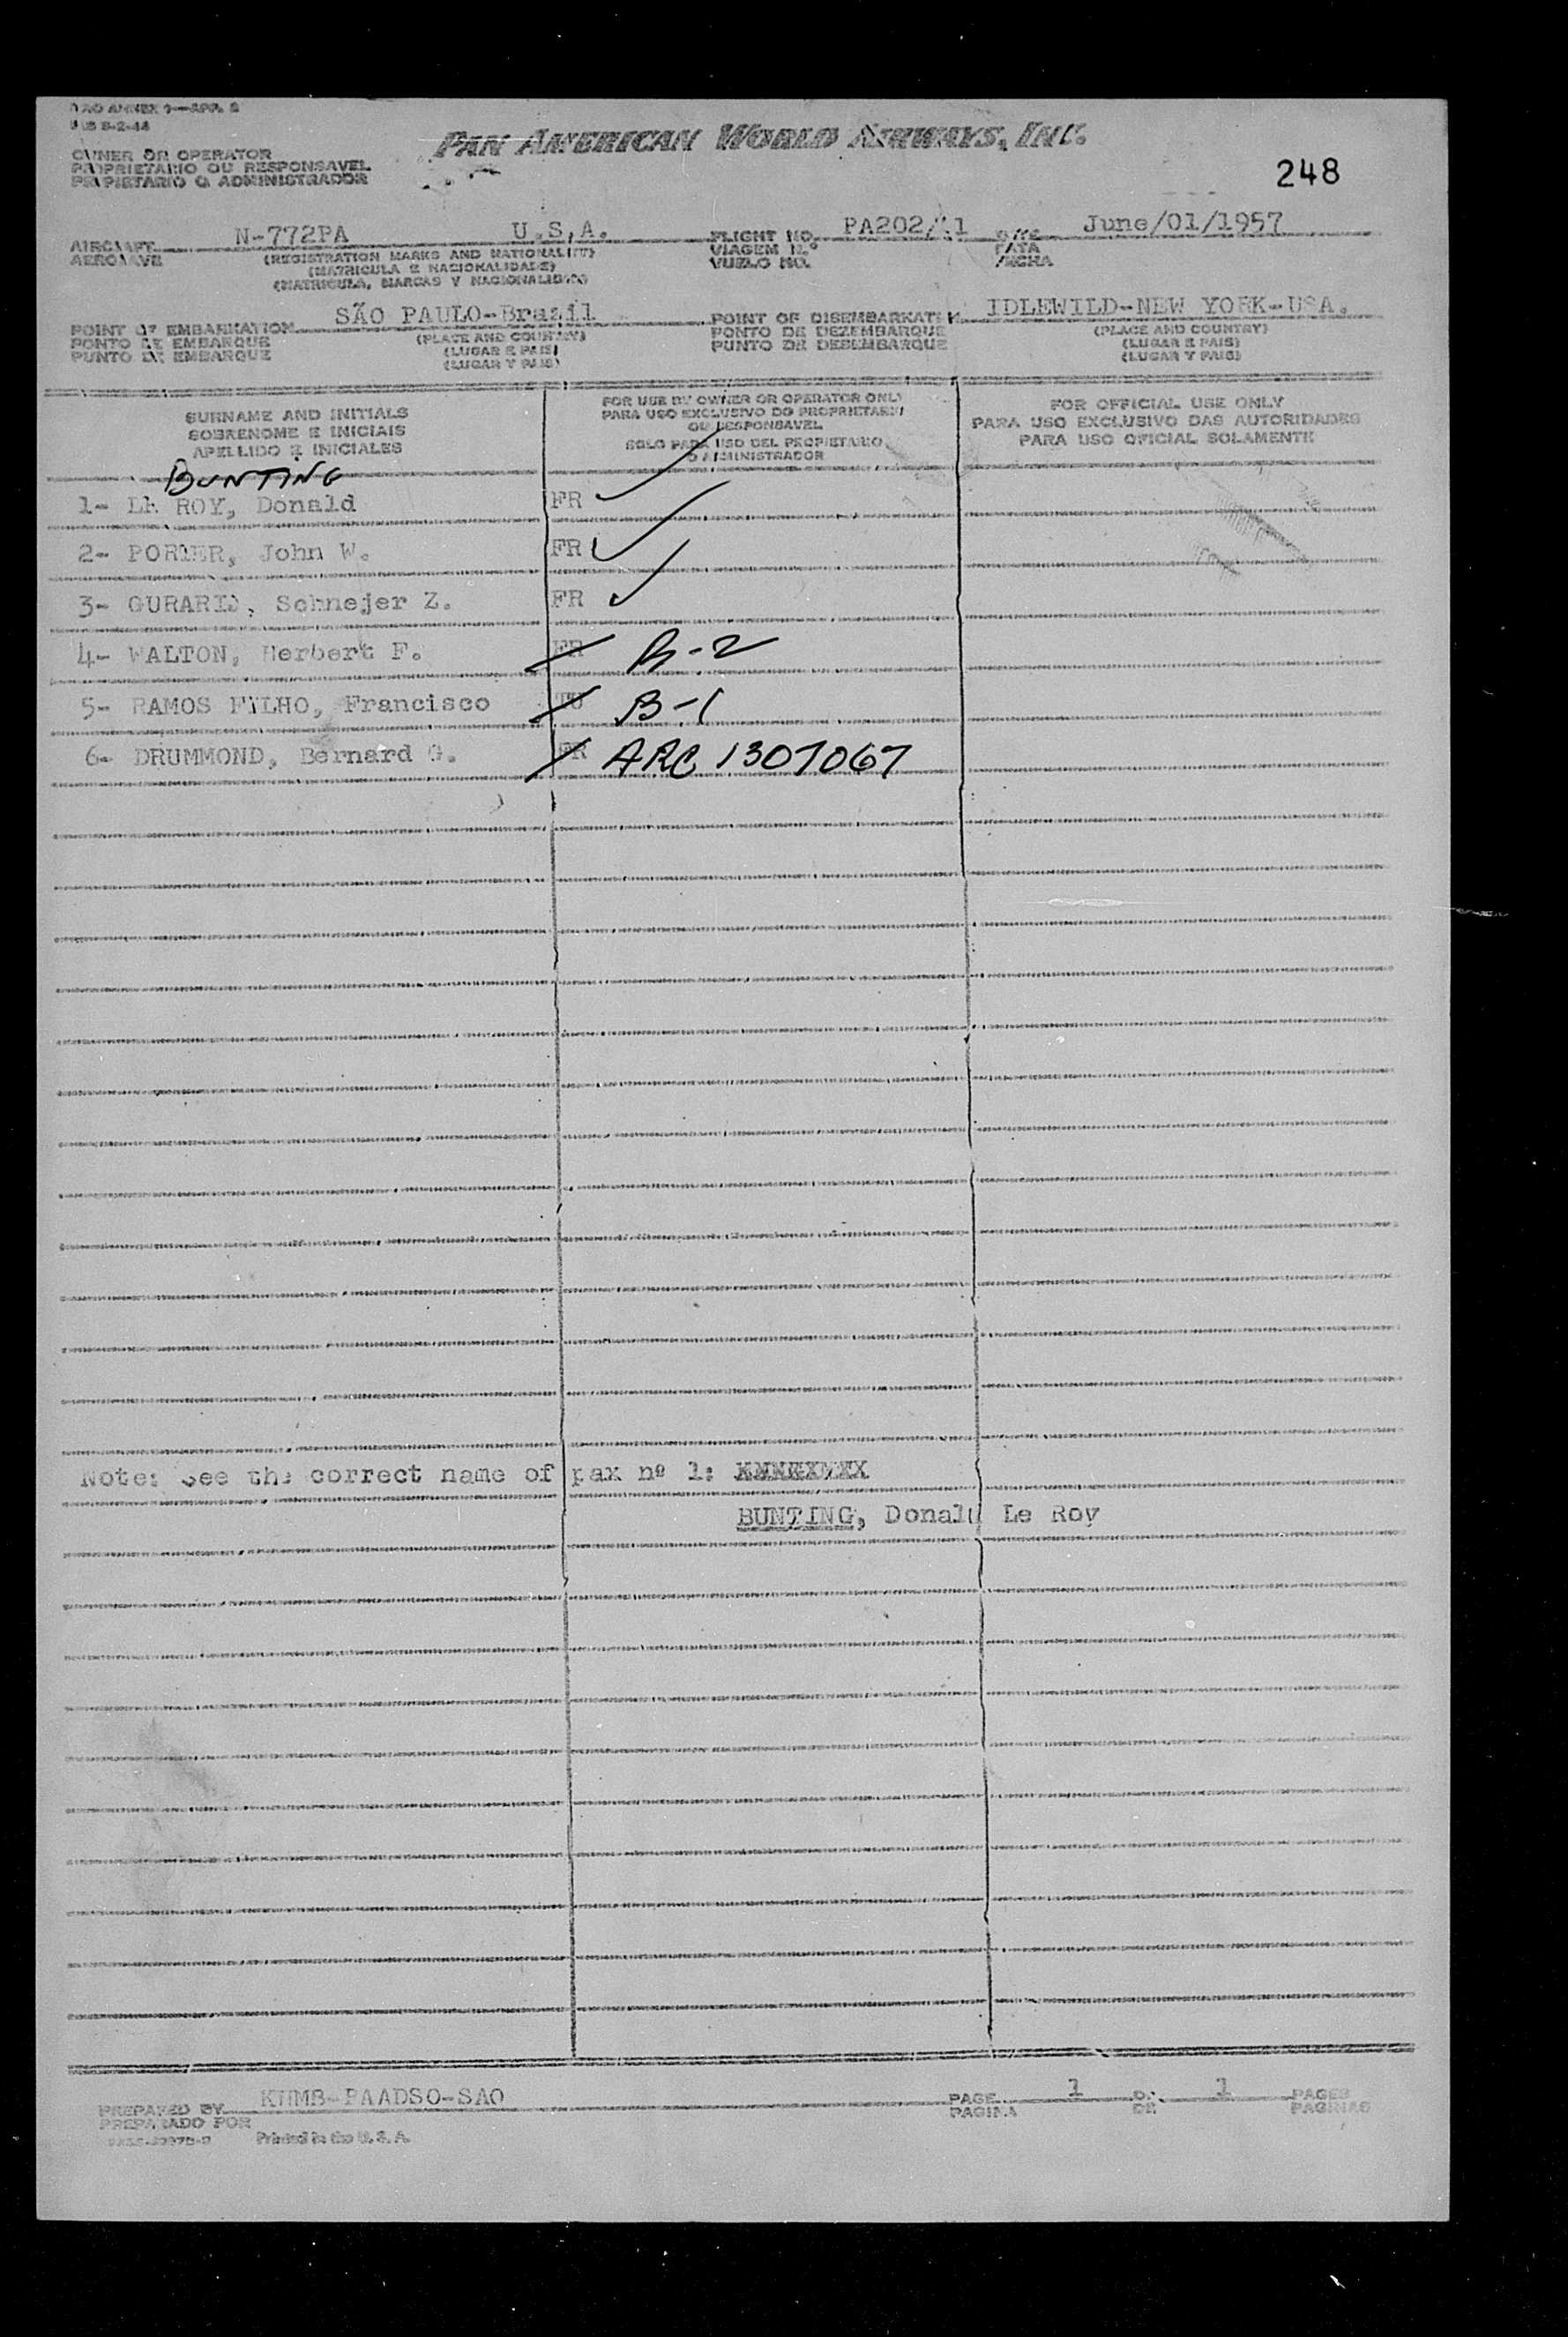 PAN AMERICAN WORLD AIRWAYS, INC.
OWNER OR OPERATOR
PROPRIETARIO OU RESPONSAVEL
PROPIETARIO O ADMINISTRADOR
248
AIRCRAFT N-772PA U.S.A. FLIGHT NO. PA202/ DATE June/01/1957
AERONAVE (REGISTRATION MARKS AND NATIONALITY) VIAGEM N.º DATA
(MATRICULA E NACIONALIDADE) VUELO NO. FECHA
(MATRICULA, MARCAS Y NACIONALIDAD)
POINT OF EMBARKATION SÃO PAULO-Brazil POINT OF DISEMBARKATION IDLEWILD-NEW YORK-USA.
PONTO DE EMBARQUE (PLACE AND COUNTRY) PONTO DE DEZEMBARQUE (PLACE AND COUNTRY)
PUNTO DE EMBARQUE (LUGAR E PAIS) PUNTO DE DESEMBARQUE (LUGAR E PAIS)
(LUGAR Y PAIS) (LUGAR Y PAIS)
SURNAME AND INITIALS
SOBRENOME E INICIAIS
APELLIDO E INICIALES
FOR USE BY OWNER OR OPERATOR ONLY
PARA USO EXCLUSIVO DO PROPRIETARIO
OU RESPONSAVEL
SOLO PARA USO DEL PROPIETARIO
O ADMINISTRADOR
FOR OFFICIAL USE ONLY
PARA USO EXCLUSIVO DAS AUTORIDADES
PARA USO OFICIAL SOLAMENTE
BUNTING
1- LE ROY, Donald FR
2- PORTER, John W. FR
3- GURARID, Schnejer Z. FR
4- WALTON, Herbert F. FR B-2
5- RAMOS FILHO, Francisco TU B-1
6- DRUMMOND, Bernard G. FR ARC 1307067
Note: See the correct name of pax nº 1:
BUNTING, Donald Le Roy
PREPARED BY KHMB-PAADSO-SAO PAGE 1 OF 1 PAGES
PREPARADO POR PAGINA DE PAGINAS
Printed in the U.S.A.